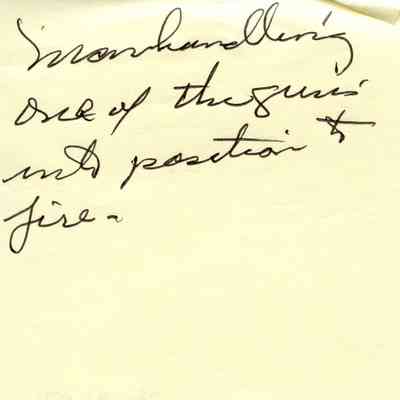 Manhandling
one of the guns
into position to
fire.